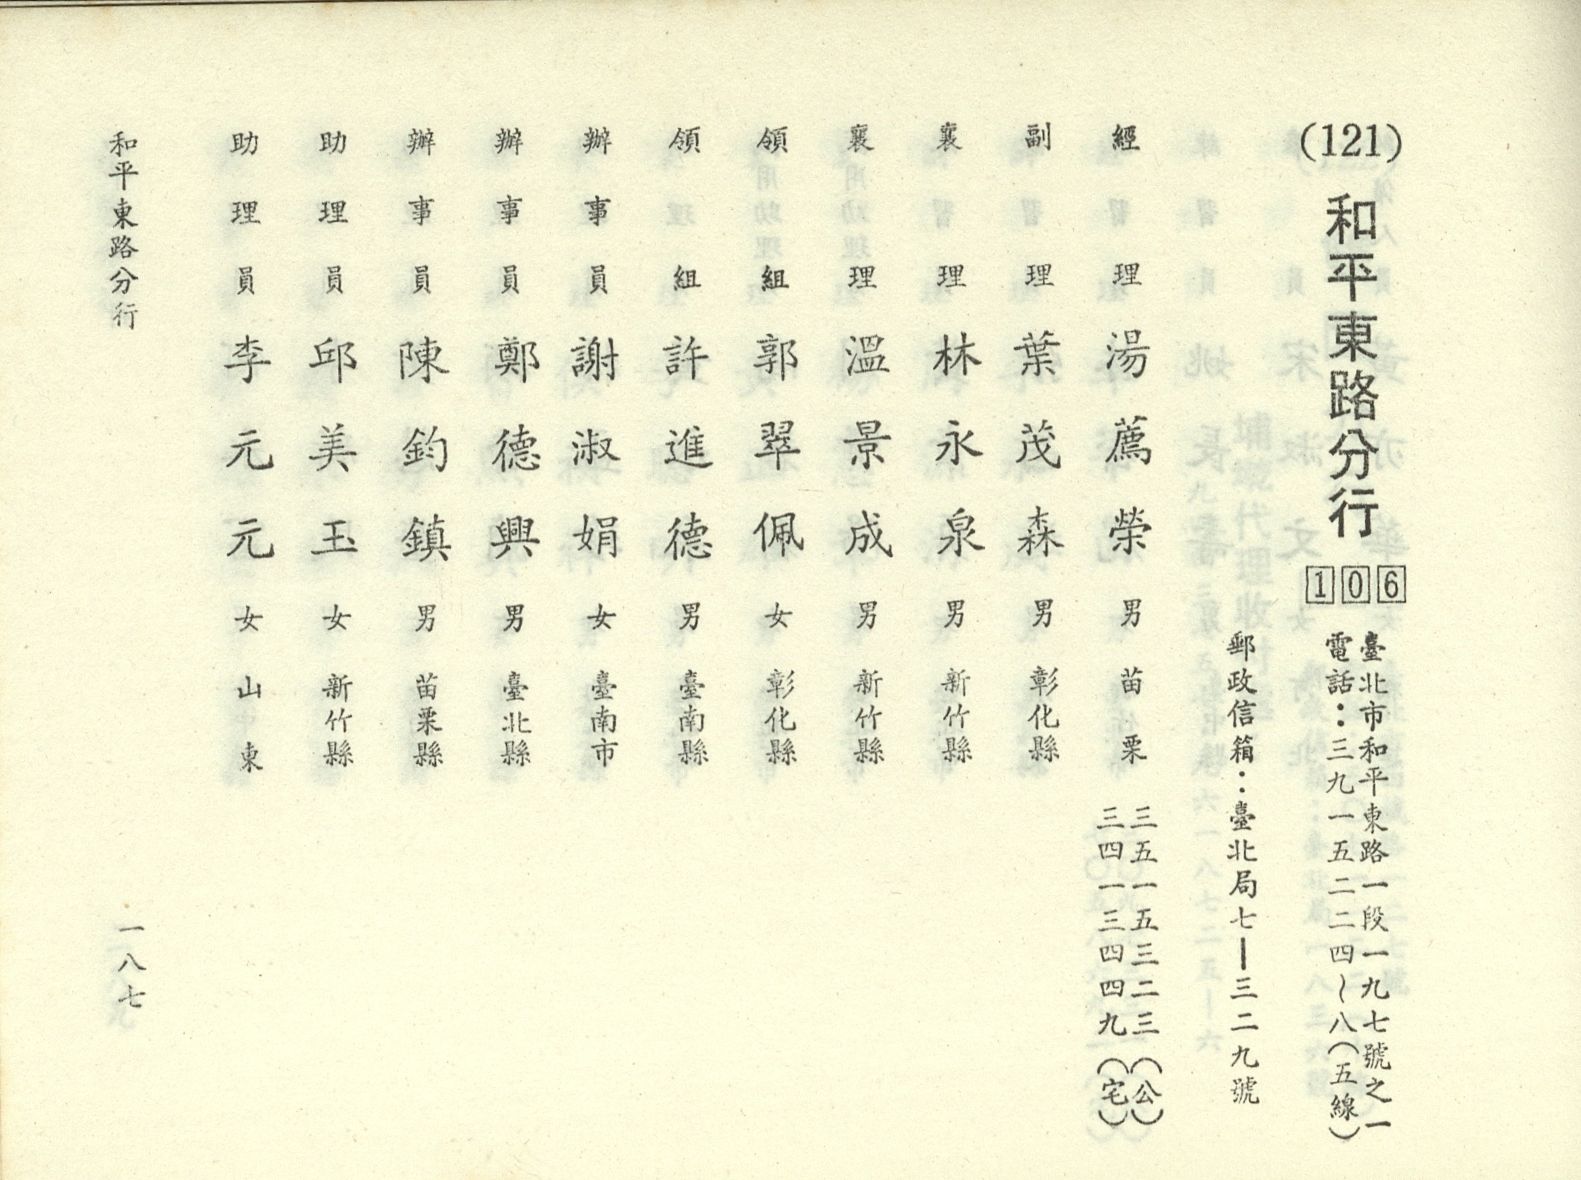 (121)和平東路分行106
臺北市和平東路一段一九七號之一
電話：三九一五二二四～八(五線)
郵政信箱：臺北局七—三二九號
經理 湯薦榮 男 苗栗 三五一五三二三(公)
三四一三四四九(宅)
副理 葉茂森 男 彰化縣
襄理 林永泉 男 新竹縣
襄理 溫景成 男 新竹縣
領組 郭翠佩 女 彰化縣
領組 許進德 男 臺南縣
辦事員 謝淑娟 女 臺南市
辦事員 鄭德興 男 臺北縣
辦事員 陳鈞鎮 男 苗栗縣
助理員 邱美玉 女 新竹縣
助理員 李元元 女 山東
和平東路分行
一八七